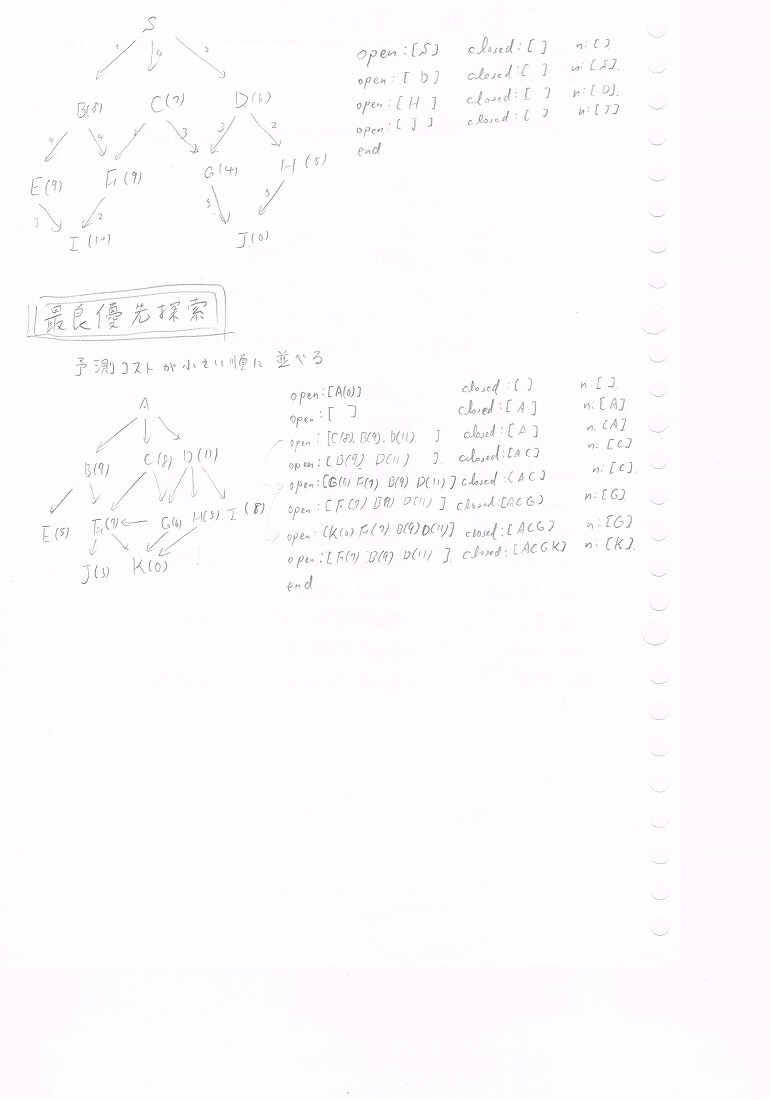 S
1 4 2
B(8) C(7) D(6)
4 4 2 3 3 2
E(9) F(9) G(4) H(5)
3 2 5 5
I(10) J(0)
open:[S] closed:[ ] n:[ ].
open:[ D ] closed:[ ] n:[S].
open:[ H ] closed:[ ] n:[D].
open:[ J ] closed:[ ] n:[J]
end
最良優先探索
予測コストが小さい順に並べる
A
B(9) C(8) D(11)
E(5) F(7) G(6) H(5) I(8)
J(3) K(0)
open:[A(0)] closed:[ ] n:[ ].
open:[ ] closed:[A] n:[A]
open:[C(8), B(9), D(11). ] closed:[A] n:[A]
open:[B(9) D(11) ]. closed:[AC] n:[C]
open:[G(6) F(7) B(9) D(11)] closed:[AC] n:[C].
open:[F(7) B(9) D(11) ] closed:[ACG] n:[G]
open:[K(0) F(7) B(9) D(11)] closed:[ACG] n:[G]
open:[F(7) B(9) D(11) ]. closed:[ACGK] n:[K].
end